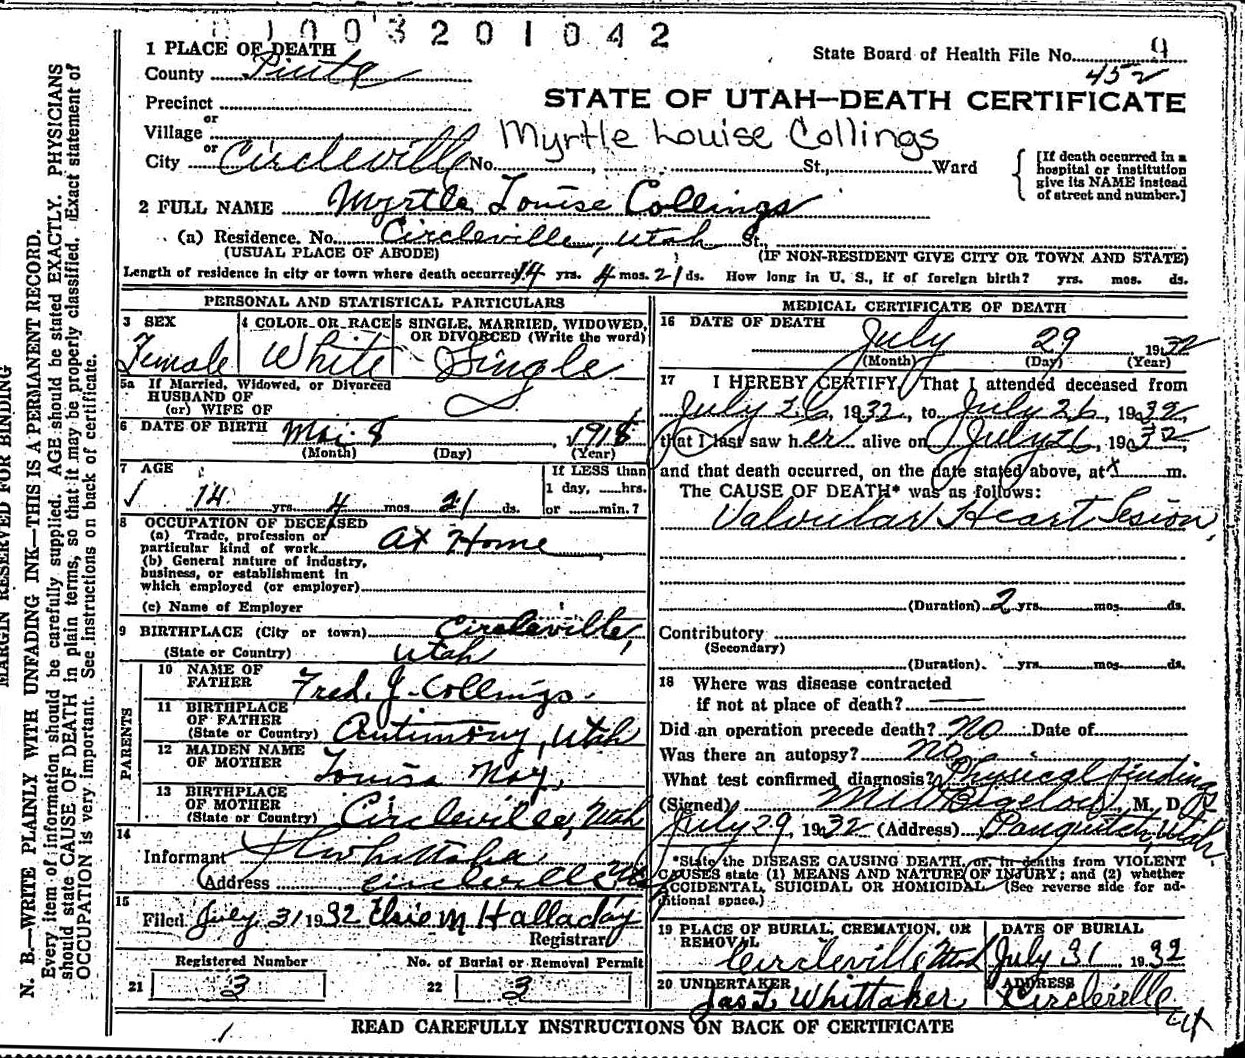 1003201042
State Board of Health File No. 9
452
1 PLACE OF DEATH
County Piute
Precinct
or
Village
or
City Circleville No. St., Ward
STATE OF UTAH—DEATH CERTIFICATE
Myrtle Louise Collings
[If death occurred in a
hospital or institution
give its NAME instead
of street and number.]
2 FULL NAME Myrtle Louise Collings
(a) Residence. No. Circleville, Utah St.,
(USUAL PLACE OF ABODE) (IF NON-RESIDENT GIVE CITY OR TOWN AND STATE)
Length of residence in city or town where death occurred 14 yrs. 4 mos. 21 ds. How long in U. S., if of foreign birth? yrs. mos. ds.
PERSONAL AND STATISTICAL PARTICULARS
3 SEX
Female
4 COLOR OR RACE
White
5 SINGLE, MARRIED, WIDOWED,
OR DIVORCED (Write the word)
Single
5a If Married, Widowed, or Divorced
HUSBAND OF
(or) WIFE OF
6 DATE OF BIRTH Mar. 8, 1918
(Month) (Day) (Year)
7 AGE
14 yrs. 4 mos. 21 ds.
If LESS than
1 day, hrs.
or min.?
8 OCCUPATION OF DECEASED
(a) Trade, profession or
particular kind of work At Home
(b) General nature of industry,
business, or establishment in
which employed (or employer)
(c) Name of Employer
9 BIRTHPLACE (City or town) Circleville,
(State or Country) Utah
PARENTS
10 NAME OF
FATHER Fred. J. Collings.
11 BIRTHPLACE
OF FATHER
(State or Country) Antimony, Utah
12 MAIDEN NAME
OF MOTHER Louisa Nay,
13 BIRTHPLACE
OF MOTHER
(State or Country) Circleville, Utah
14
Informant Whittaker
Address Circleville
15
Filed July 31 1932 Elsie M Halladay
Registrar
Registered Number No. of Burial or Removal Permit
21 3 22 3
MEDICAL CERTIFICATE OF DEATH
16 DATE OF DEATH
July 29 1932
(Month) (Day) (Year)
17 I HEREBY CERTIFY, That I attended deceased from
July 26, 1932, to July 26, 1932
that I last saw her alive on July 26, 1932
and that death occurred, on the date stated above, at m.
The CAUSE OF DEATH* was as follows:
Valvular Heart Lesion,
(Duration) 2 yrs. mos. ds.
Contributory
(Secondary)
(Duration) yrs. mos. ds.
18 Where was disease contracted
if not at place of death?
Did an operation precede death? No Date of
Was there an autopsy? No
What test confirmed diagnosis? Physical finding
(Signed) Bigelow, M. D.
July 29, 1932 (Address) Panguitch, Utah
*State the DISEASE CAUSING DEATH, or, in deaths from VIOLENT
CAUSES state (1) MEANS AND NATURE OF INJURY; and (2) whether
ACCIDENTAL, SUICIDAL OR HOMICIDAL. (See reverse side for ad-
ditional space.)
19 PLACE OF BURIAL, CREMATION, OR
REMOVAL
Circleville Utah
DATE OF BURIAL
July 31 1932
20 UNDERTAKER
Jas L Whittaker
ADDRESS
Circleville
Ut
READ CAREFULLY INSTRUCTIONS ON BACK OF CERTIFICATE
MARGIN RESERVED FOR BINDING
N. B.—WRITE PLAINLY WITH UNFADING INK—THIS IS A PERMANENT RECORD.
Every item of information should be carefully supplied. AGE should be stated EXACTLY. PHYSICIANS
should state CAUSE OF DEATH in plain terms, so that it may be properly classified. Exact statement of
OCCUPATION is very important. See instructions on back of certificate.